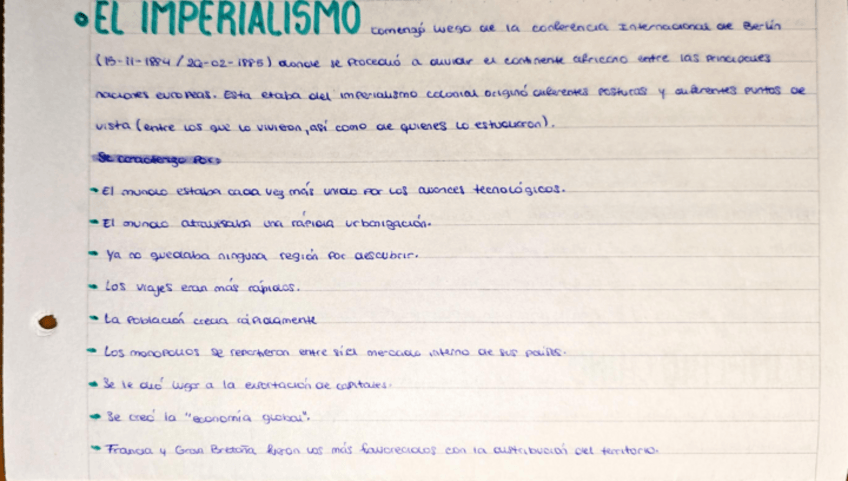 • EL IMPERIALISMO comenzó luego de la conferencia Internacional de Berlín
(15-11-1884 / 20-02-1885) donde se procedió a dividir el continente africano entre las principales
naciones europeas. Esta etapa del imperialismo colonial originó diferentes posturas y diferentes puntos de
vista (entre los que lo vivieron, así como de quienes lo estudiaron).
Se caracterizo por:
- El mundo estaba cada vez más unido por los avances tecnológicos.
- El mundo atravisaba una rápida urbanización.
- Ya no quedaba ninguna región por descubrir.
- Los viajes eran más rápidos.
- La población crecía rápidamente
- Los monopolios se repartieron entre sí el mercado interno de sus países.
- Se le dió lugar a la exportación de capitales.
- Se creó la "economía global".
- Francia y Gran Bretaña fueron los más favorecidos con la distribución del territorio.